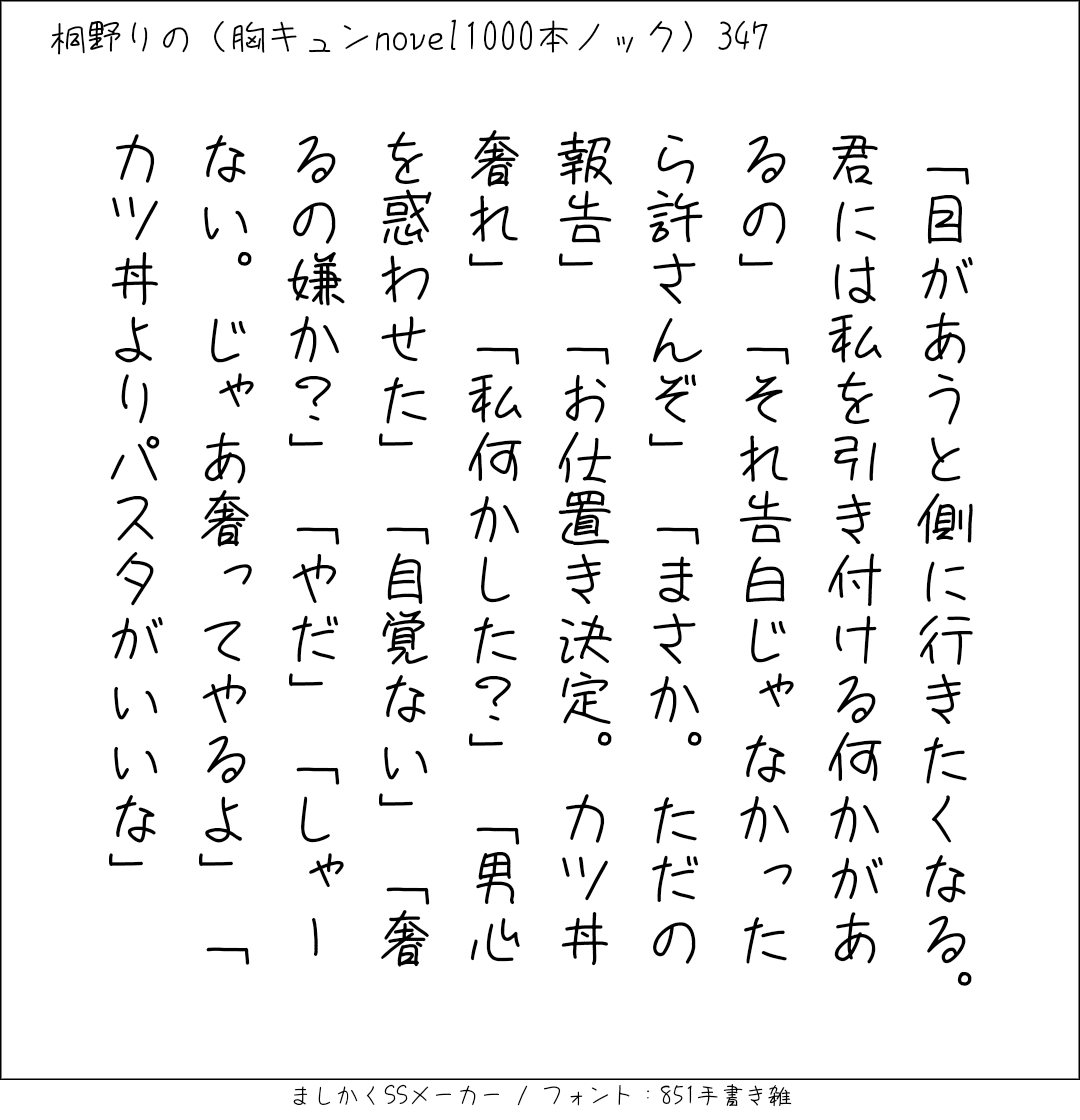 桐野りの（胸キュンnovel1000本ノック）347
「目があうと側に行きたくなる。
君には私を引き付ける何かがあ
るの」「それ告白じゃなかった
ら許さんぞ」「まさか。ただの
報告」「お仕置き決定。カツ丼
奢れ」「私何かした？」「男心
を惑わせた」「自覚ない」「奢
るの嫌か？」「やだ」「しゃー
ない。じゃあ奢ってやるよ」「
カツ丼よりパスタがいいな」
ましかくSSメーカー / フォント：851手書き雑